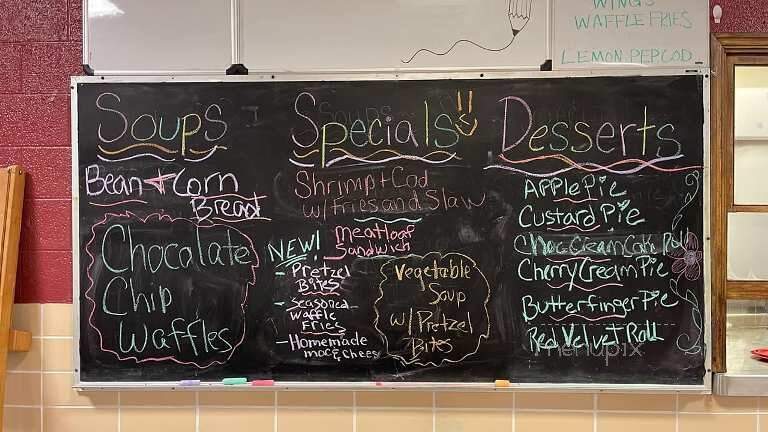 WINGS
WAFFLE FRIES
LEMON PEP COD
Soups
Bean + Corn
Bread
Chocolate
Chip
Waffles
Specials
Shrimp + Cod
w/ Fries and Slaw
meatloaf
Sandwich
NEW!
- Pretzel
Bites
- Seasoned
Waffle
Fries
- Homemade
mac & chees
Vegetable
Soup
w/ Pretzel
Bites
Desserts
Apple Pie
Custard Pie
Choc Cream Cake Roll
Cherry Cream Pie
Butterfinger Pie
Red Velvet Roll
menupix